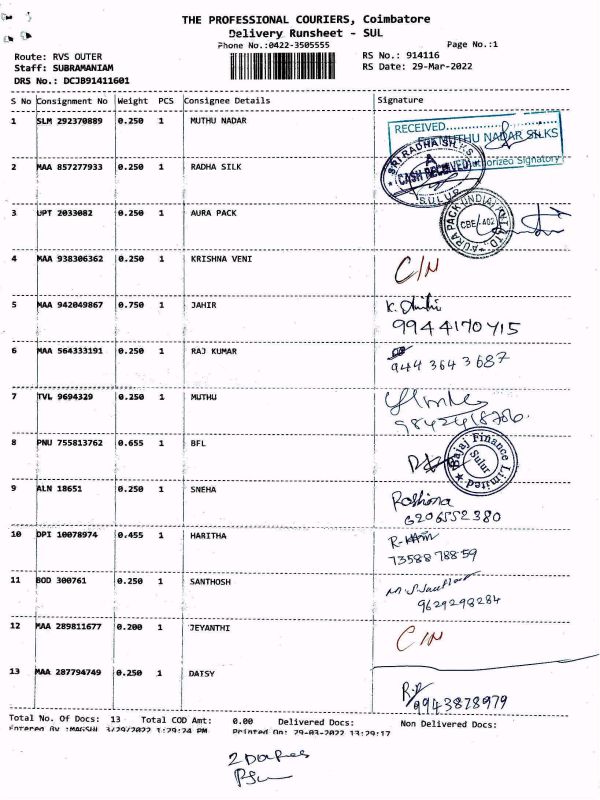 THE PROFESSIONAL COURIERS, Coimbatore
Delivery Runsheet - SUL
Phone No.:0422-3505555
Page No.:1
Route: RVS OUTER
RS No.: 914116
Staff: SUBRAMANIAM
RS Date: 29-Mar-2022
DRS No.: DCJB91411601
S No Consignment No Weight PCS Consignee Details Signature
1 SLM 292370889 0.250 1 MUTHU NADAR
RECEIVED..................
For MUTHU NADAR SILKS
Authorized Signatory
2 MAA 857277933 0.250 1 RADHA SILK
SRI RADHA SILKS
CASH RECEIVED
SULUR
3 UPT 2033082 0.250 1 AURA PACK
AURA PACK (INDIA) PVT LTD
CBE-402
4 MAA 938306362 0.250 1 KRISHNA VENI C/N
5 MAA 942049867 0.750 1 JAHIR
9944170415
6 MAA 564333191 0.250 1 RAJ KUMAR
944 3643687
7 TVL 9694329 0.250 1 MUTHU
8 PNU 755813762 0.655 1 BFL
Bajaj Finance Limited
Sulur
9 ALN 18651 0.250 1 SNEHA
6206552380
10 DPI 10078974 0.455 1 HARITHA
7358878859
11 BOD 300761 0.250 1 SANTHOSH
9629298284
12 MAA 289811677 0.200 1 JEYANTHI C/N
13 MAA 287794749 0.250 1 DAISY
9943878979
Total No. Of Docs: 13 Total COD Amt: 0.00 Delivered Docs: Non Delivered Docs:
Entered By :MAGSHL 3/29/2022 1:29:24 PM Printed On: 29-03-2022 13:29:17